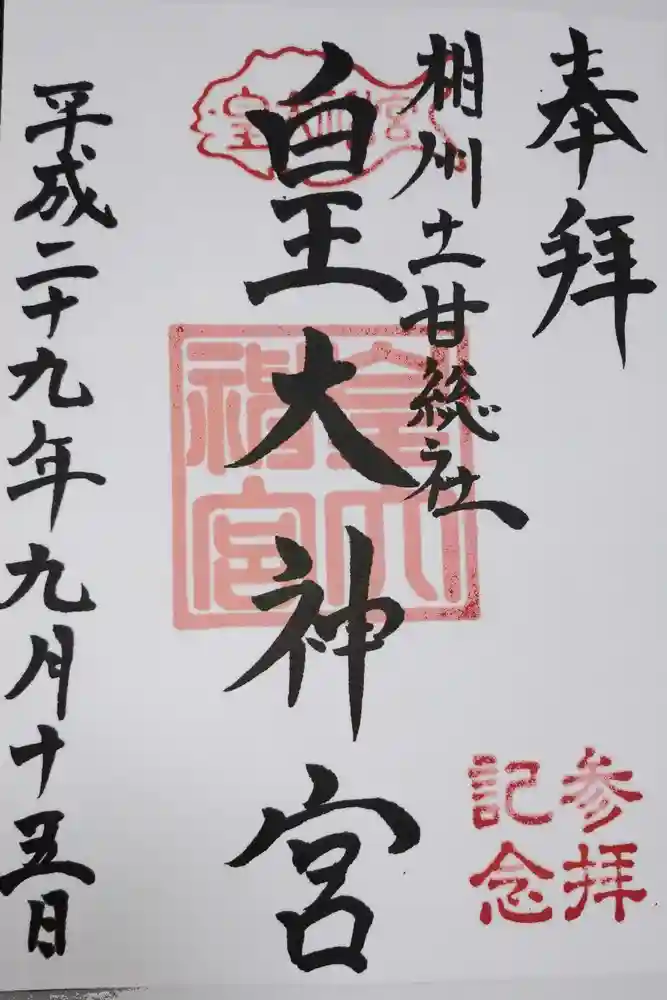 奉拝
相州土甘総社
皇大神宮
平成二十九年九月十五日
皇大神宮
皇大神宮
参拝
記念